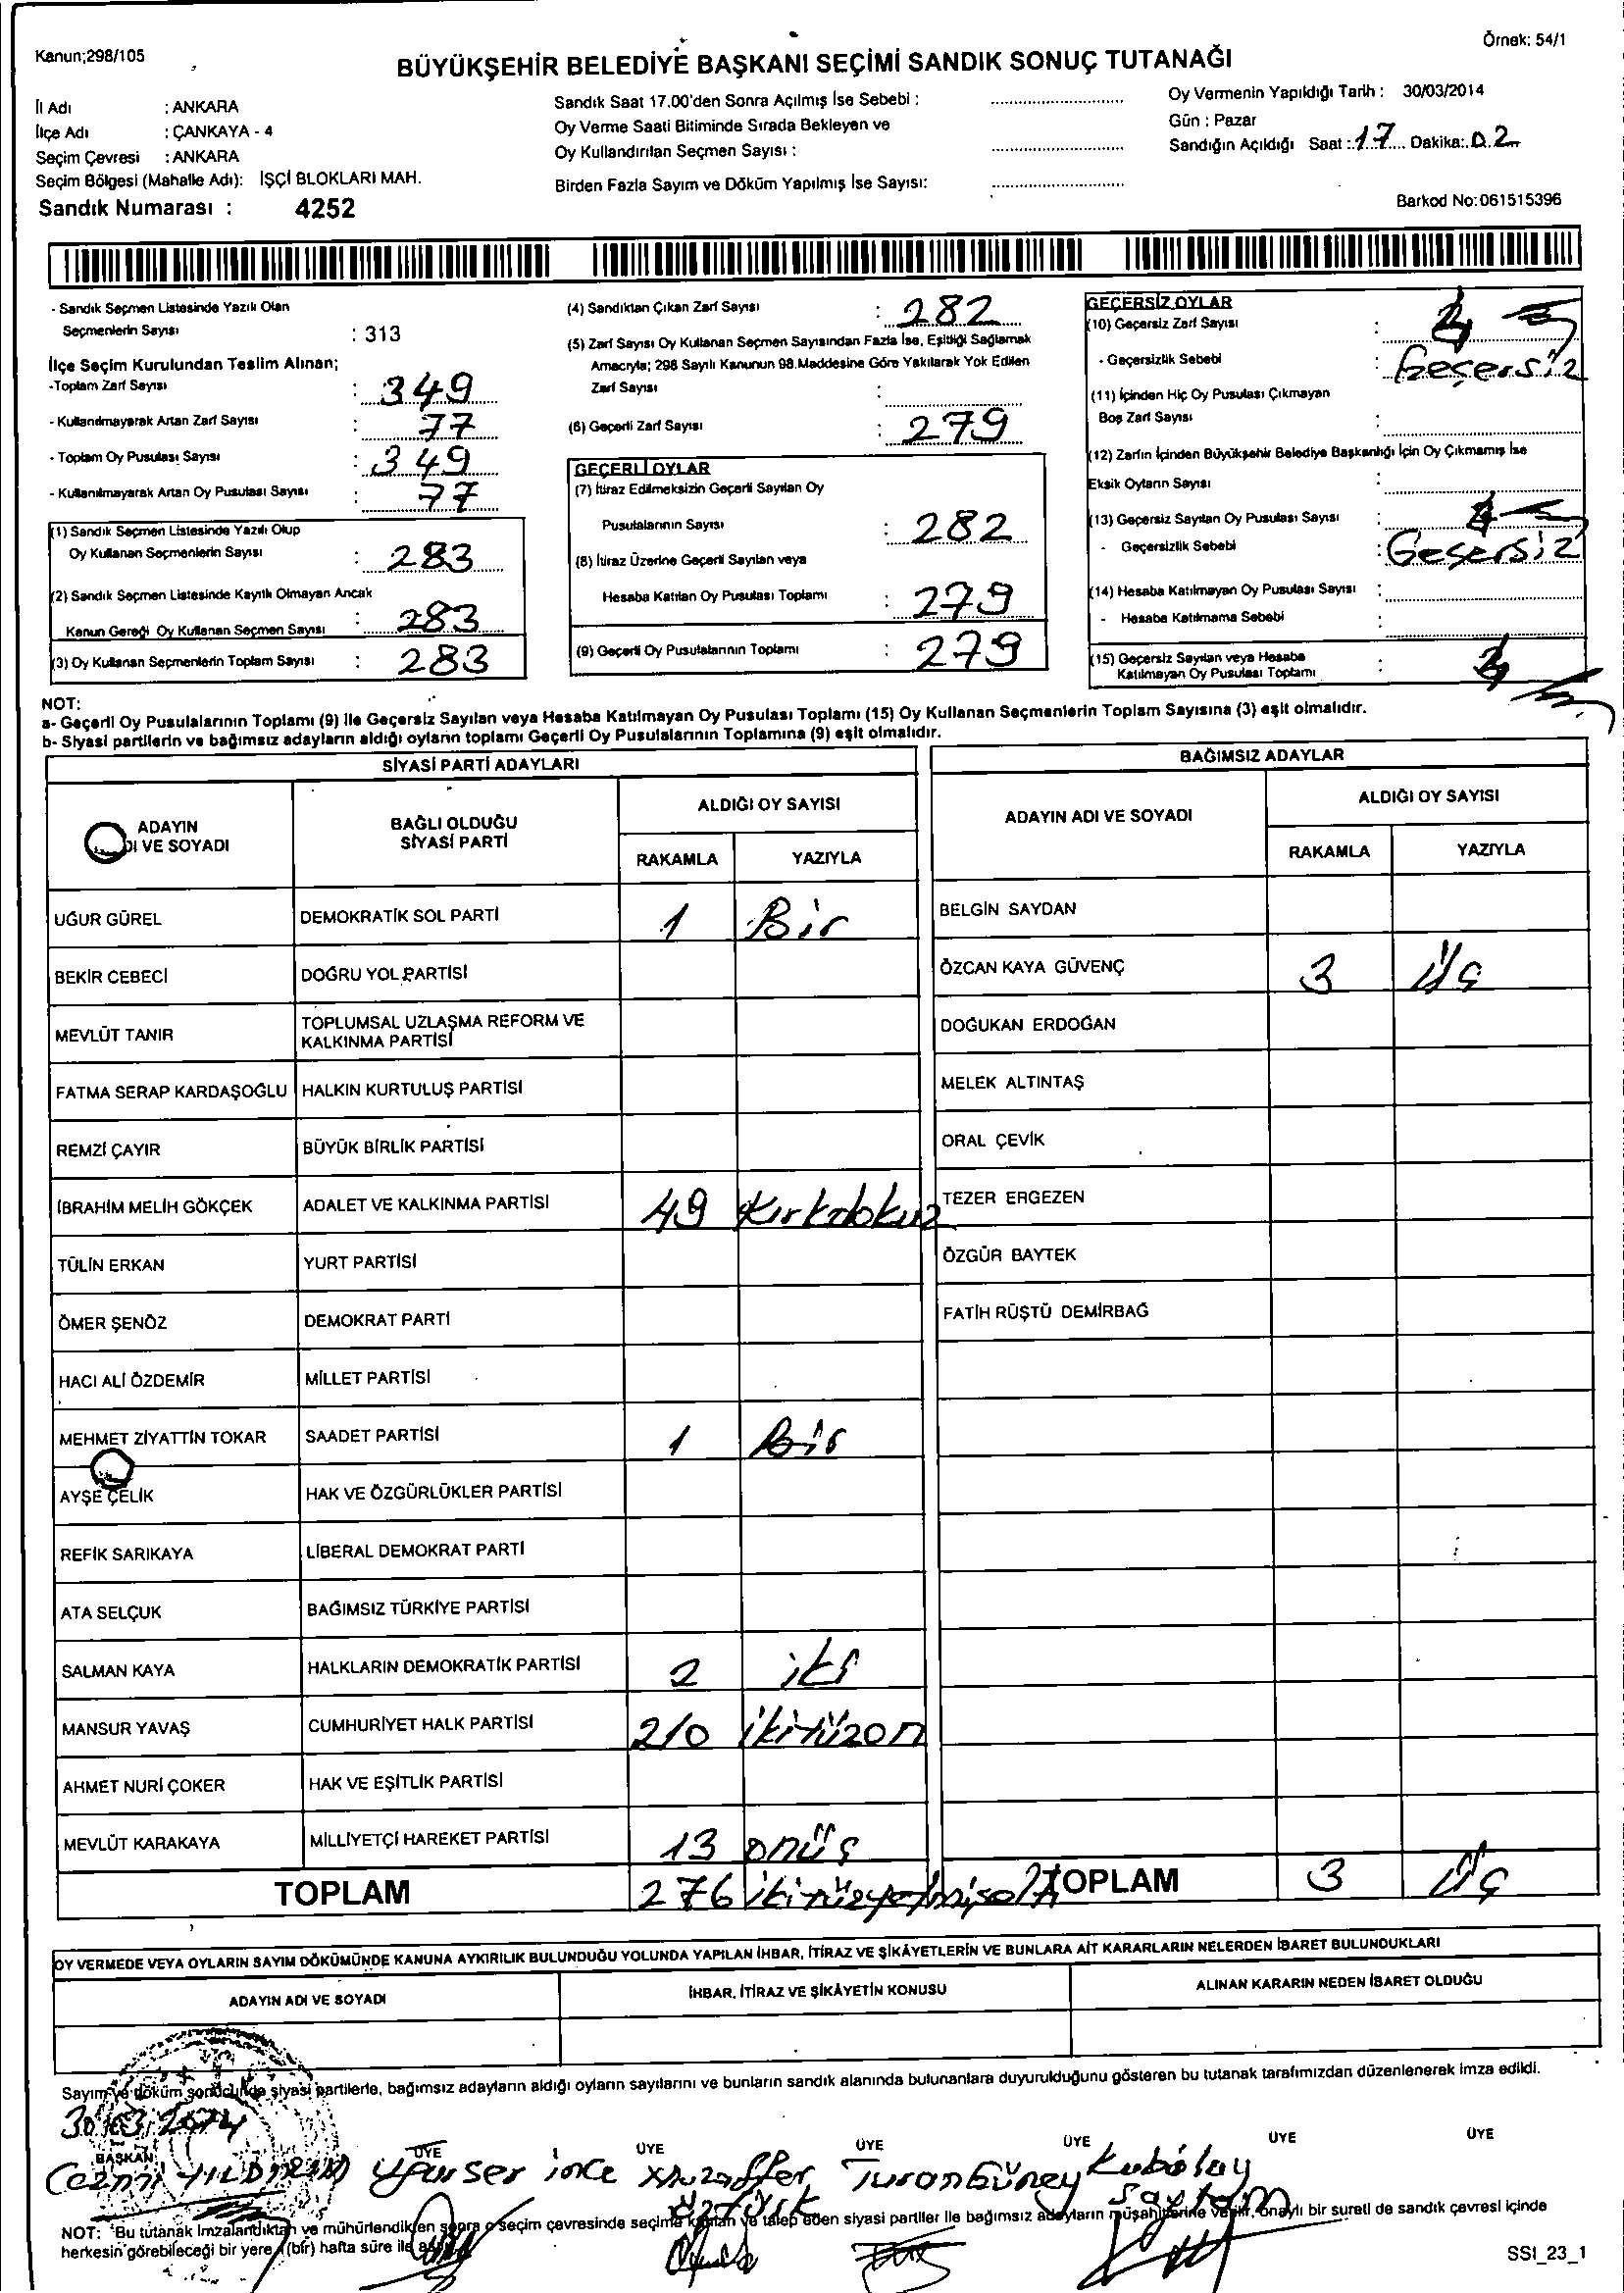 Kanun;298/105
Örnek: 54/1
BÜYÜKŞEHİR BELEDİYE BAŞKANI SEÇİMİ SANDIK SONUÇ TUTANAĞI
İl Adı : ANKARA
İlçe Adı : ÇANKAYA - 4
Seçim Çevresi : ANKARA
Seçim Bölgesi (Mahalle Adı): İŞÇİ BLOKLARI MAH.
Sandık Numarası : 4252
Sandık Saat 17.00'den Sonra Açılmış İse Sebebi :
Oy Verme Saati Bitiminde Sırada Bekleyen ve
Oy Kullandırılan Seçmen Sayısı :
Birden Fazla Sayım ve Döküm Yapılmış İse Sayısı:
Oy Vermenin Yapıldığı Tarih : 30/03/2014
Gün : Pazar
Sandığın Açıldığı Saat : 17 Dakika: 02
Barkod No:061515396
- Sandık Seçmen Listesinde Yazılı Olan
Seçmenlerin Sayısı : 313
İlçe Seçim Kurulundan Teslim Alınan;
-Toplam Zarf Sayısı : 349
- Kullanılmayarak Artan Zarf Sayısı : 77
- Toplam Oy Pusulası Sayısı : 349
- Kullanılmayarak Artan Oy Pusulası Sayısı : 77
(1) Sandık Seçmen Listesinde Yazılı Olup
Oy Kullanan Seçmenlerin Sayısı : 283
(2) Sandık Seçmen Listesinde Kayıtlı Olmayan Ancak
Kanun Gereği Oy Kullanan Seçmen Sayısı : 283
(3) Oy Kullanan Seçmenlerin Toplam Sayısı : 283
(4) Sandıktan Çıkan Zarf Sayısı : 282
(5) Zarf Sayısı Oy Kullanan Seçmen Sayısından Fazla İse, Eşitliği Sağlamak
Amacıyla; 298 Sayılı Kanunun 98.Maddesine Göre Yakılarak Yok Edilen
Zarf Sayısı :
(6) Geçerli Zarf Sayısı : 279
GEÇERLİ OYLAR
(7) İtiraz Edilmeksizin Geçerli Sayılan Oy
Pusulalarının Sayısı : 282
(8) İtiraz Üzerine Geçerli Sayılan veya
Hesaba Katılan Oy Pusulası Toplamı : 279
(9) Geçerli Oy Pusulalarının Toplamı : 279
GEÇERSİZ OYLAR
(10) Geçersiz Zarf Sayısı :
- Geçersizlik Sebebi : Geçersiz
(11) İçinden Hiç Oy Pusulası Çıkmayan
Boş Zarf Sayısı :
(12) Zarfın İçinden Büyükşehir Belediye Başkanlığı İçin Oy Çıkmamış İse
Eksik Oyların Sayısı :
(13) Geçersiz Sayılan Oy Pusulası Sayısı :
- Geçersizlik Sebebi : Geçersiz
(14) Hesaba Katılmayan Oy Pusulası Sayısı :
- Hesaba Katılmama Sebebi :
(15) Geçersiz Sayılan veya Hesaba
Katılmayan Oy Pusulası Toplamı :
NOT:
a- Geçerli Oy Pusulalarının Toplamı (9) ile Geçersiz Sayılan veya Hesaba Katılmayan Oy Pusulası Toplamı (15) Oy Kullanan Seçmenlerin Toplam Sayısına (3) eşit olmalıdır.
b- Siyasi partilerin ve bağımsız adayların aldığı oyların toplamı Geçerli Oy Pusulalarının Toplamına (9) eşit olmalıdır.
SİYASİ PARTİ ADAYLARI
ADAYIN
DI VE SOYADI
BAĞLI OLDUĞU
SİYASİ PARTİ
ALDIĞI OY SAYISI
RAKAMLA YAZIYLA
UĞUR GÜREL DEMOKRATİK SOL PARTİ 1 Bir
BEKİR CEBECİ DOĞRU YOL PARTİSİ
MEVLÜT TANIR TOPLUMSAL UZLAŞMA REFORM VE
KALKINMA PARTİSİ
FATMA SERAP KARDAŞOĞLU HALKIN KURTULUŞ PARTİSİ
REMZİ ÇAYIR BÜYÜK BİRLİK PARTİSİ
İBRAHİM MELİH GÖKÇEK ADALET VE KALKINMA PARTİSİ 49 Kırkdokuz
TÜLİN ERKAN YURT PARTİSİ
ÖMER ŞENÖZ DEMOKRAT PARTİ
HACI ALİ ÖZDEMİR MİLLET PARTİSİ
MEHMET ZİYATTİN TOKAR SAADET PARTİSİ 1 Bir
AYŞE ÇELİK HAK VE ÖZGÜRLÜKLER PARTİSİ
REFİK SARIKAYA LİBERAL DEMOKRAT PARTİ
ATA SELÇUK BAĞIMSIZ TÜRKİYE PARTİSİ
SALMAN KAYA HALKLARIN DEMOKRATİK PARTİSİ 2 iki
MANSUR YAVAŞ CUMHURİYET HALK PARTİSİ 210 ikiyüzon
AHMET NURİ ÇOKER HAK VE EŞİTLİK PARTİSİ
MEVLÜT KARAKAYA MİLLİYETÇİ HAREKET PARTİSİ 13 onüç
TOPLAM 276 ikiyüzyetmişaltı
BAĞIMSIZ ADAYLAR
ADAYIN ADI VE SOYADI
ALDIĞI OY SAYISI
RAKAMLA YAZIYLA
BELGİN SAYDAN
ÖZCAN KAYA GÜVENÇ 3 üç
DOĞUKAN ERDOĞAN
MELEK ALTINTAŞ
ORAL ÇEVİK
TEZER ERGEZEN
ÖZGÜR BAYTEK
FATİH RÜŞTÜ DEMİRBAĞ
TOPLAM 3 Üç
OY VERMEDE VEYA OYLARIN SAYIM DÖKÜMÜNDE KANUNA AYKIRILIK BULUNDUĞU YOLUNDA YAPILAN İHBAR, İTİRAZ VE ŞİKÂYETLERİN VE BUNLARA AİT KARARLARIN NELERDEN İBARET BULUNDUKLARI
ADAYIN ADI VE SOYADI İHBAR, İTİRAZ VE ŞİKÂYETİN KONUSU ALINAN KARARIN NEDEN İBARET OLDUĞU
Sayım ve döküm sonucunda siyasi partilerle, bağımsız adayların aldığı oyların sayılarını ve bunların sandık alanında bulunanlara duyurulduğunu gösteren bu tutanak tarafımızdan düzenlenerek imza edildi.
30.03.2014
BAŞKAN ÜYE ÜYE ÜYE ÜYE ÜYE ÜYE
Cezmi YILDIRIM ince Muzaffer Turan Güney Kubilay
Öztürk Saytam
NOT: Bu tutanak imzalandıktan ve mühürlendikten sonra o seçim çevresinde seçime katılan ve talep eden siyasi partiler ile bağımsız adayların müşahitlerine verilir, onaylı bir sureti de sandık çevresi içinde
herkesin görebileceği bir yere (bir) hafta süre ile asılır.
SSI_23_1